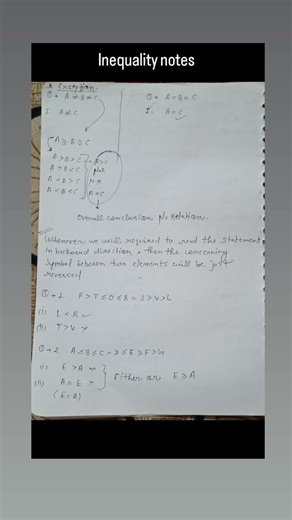 Inequality notes
* Exception.
①→ A ≠ B ≠ C
I. A ≠ C
①→ A = B = C
I. A = C ✓
A ≥ A ≥ C
A > B > C → A > C
A > B < C N·R
A < B > C N·R
A < B < C A < C
Overall conclusion No relation.
Whenever we will required to read the statement
in backward direction, then the concerning
symbol between two elements will be just
reversed.
①→1. P > T ≤ O ≤ R = S > V > L
(i) L < R ✓
(ii) T > V ×
①→2. A ≤ B ≤ C = D ≤ E ≥ F > G
(i) E > A ×
(ii) A = E ×
(E = A)
Either or E ≥ A